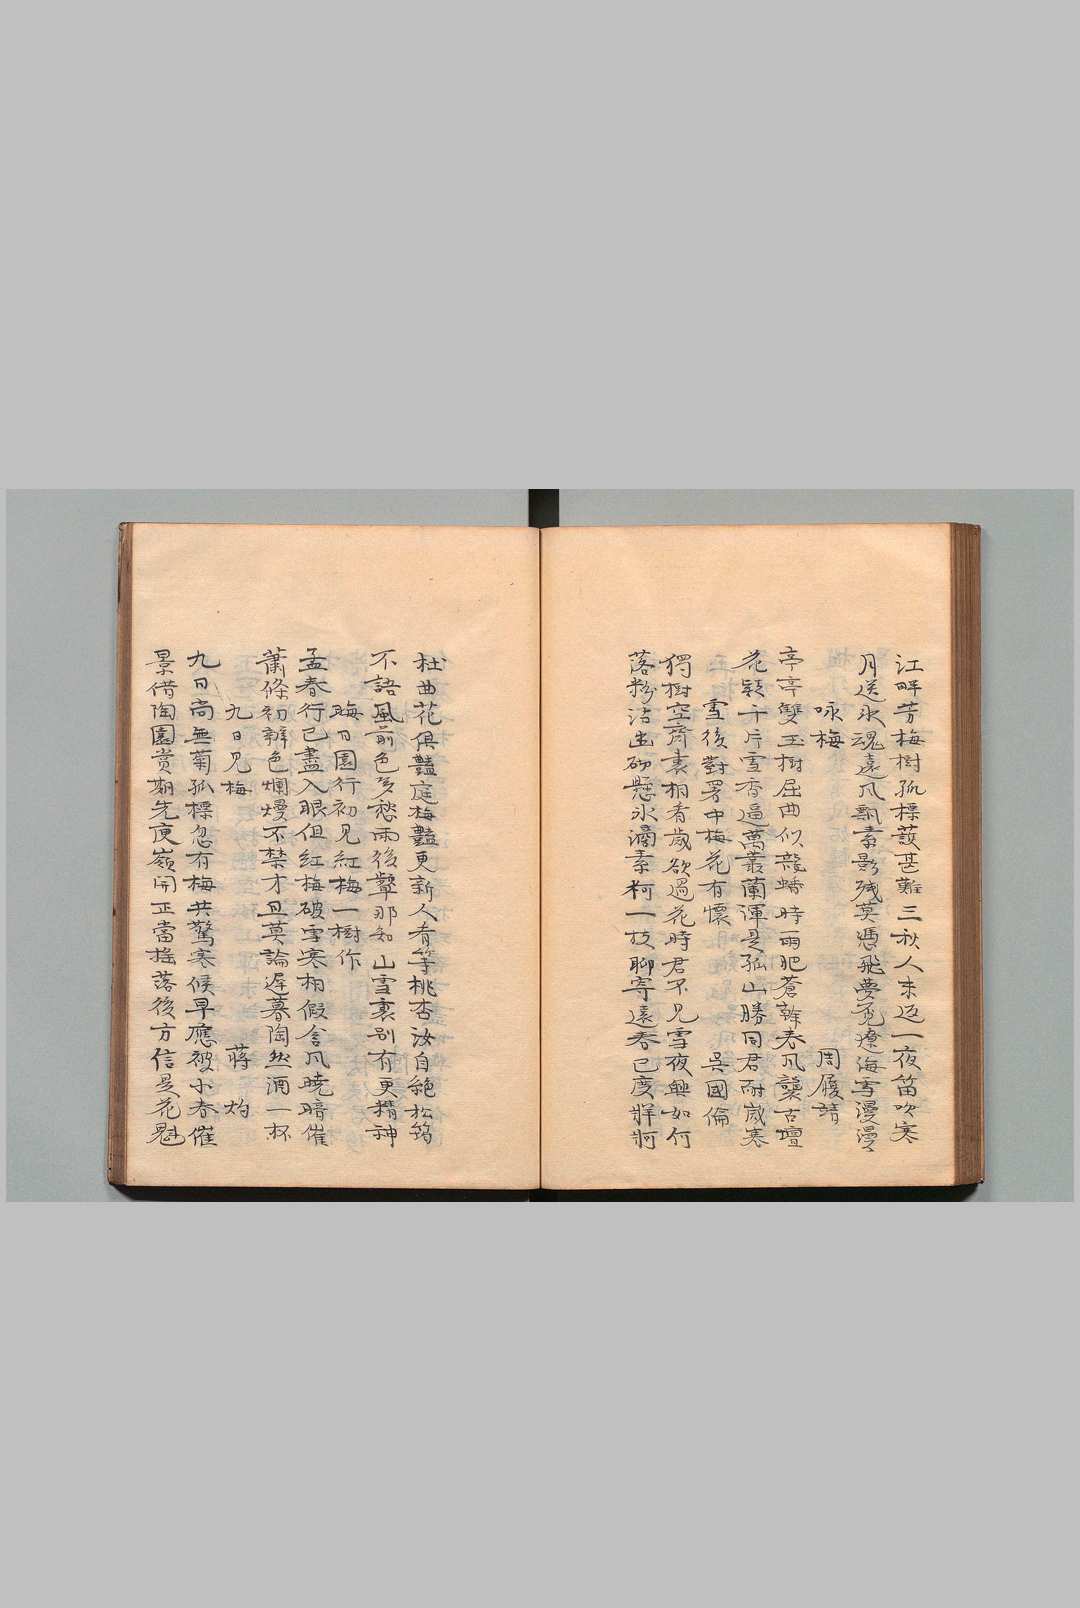 江畔芳梅樹孤標護甚難三秋人未返一夜笛吹寒
月送氷魂遠風飄素影殘莫憑飛夢覓遼海雪漫漫
咏梅 周履靖
亭亭雙玉樹屈曲似龍蟠時雨肥蒼幹春風襲古壇
花穎千片雪香逼萬叢蘭渾是孤山勝同君耐歲寒
雪後對署中梅花有懷 吳國倫
獨樹空齋裏相看歲欲過花時君不見雪夜興如何
落粉沾幽砌懸氷滴素柯一枝聊寄遠春已度牂牁
杜曲花俱豔庭梅豔更新人看等桃杏汝自絕松筠
不語風前色多愁雨後顰那知山雪裏別有更精神
晦日園行初見紅梅一樹作
孟春行已盡入眼但紅梅破雪寒相假含風曉暗催
蕭條初辨色爛熳不禁才且莫論遲暮陶然酒一杯
九日見梅 蔣灼
九日尚無菊孤標忽有梅共驚寒候早應被小春催
景借陶園賞期先庾嶺開正當搖落後方信是花魁